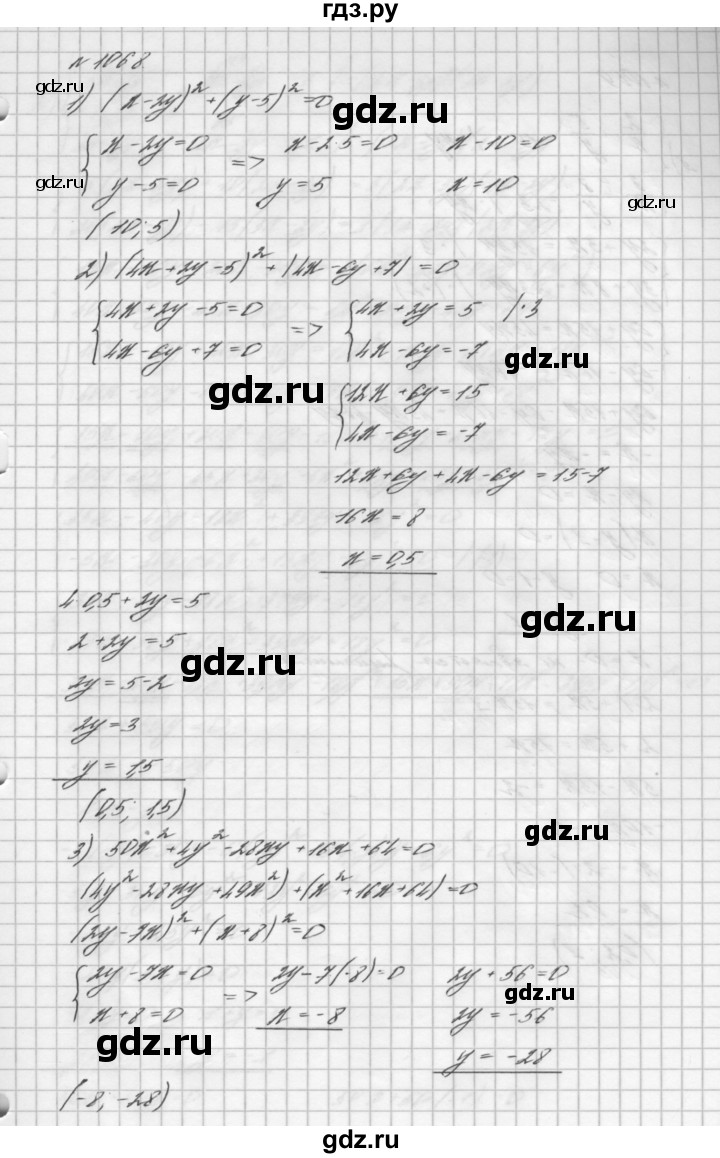 гдз.ру
№ 1068
gdz.ru
1) (x-2y)²+(y-5)²=0
gdz.ru
{x-2y=0 => x-2·5=0 x-10=0
gdz.ru
{y-5=0 y=5 x=10
gdz.ru
(10; 5)
2) (4x+2y-5)²+|4x-6y+7|=0
{4x+2y-5=0 => {4x+2y=5 |·3
{4x-6y+7=0 {4x-6y=-7
gdz.ru
gdz.ru
{12x+6y=15
{4x-6y=-7
12x+6y+4x-6y=15-7
16x=8
x=0,5
4·0,5+2y=5
gdz.ru
2+2y=5
gdz.ru
2y=5-2
2y=3
y=1,5
(0,5; 1,5)
gdz.ru
3) 50x²+4y²-28xy+16x+64=0
(4y²-28xy+49x²)+(x²+16x+64)=0
(2y-7x)²+(x+8)²=0
{2y-7x=0 => 2y-7(-8)=0 2y+56=0
gdz.ru
{x+8=0 x=-8 2y=-56
gdz.ru
y=-28
(-8; -28)
gdz.ru